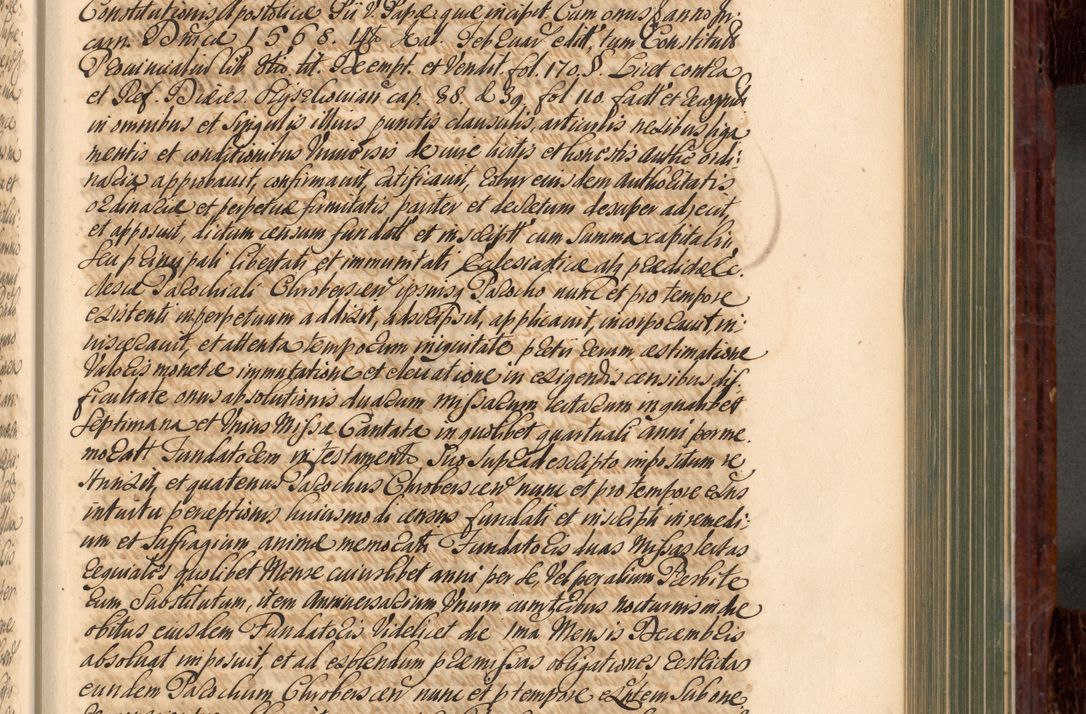 Constitutionis Apostolicæ Pii V. Papæ quæ incipit Cum onus Anno in
carn. Dnicæ 1568. 14ta Kal Februar edit, tum Constitut
Provincialiu lib 3tio tit. De empt. et Vendit. fol. 170. §. Licet contra
et Ref. Diæces. Kyszkovian cap. 38. & 39. fol 110. fact et recognit
in omnibus et singulis illius punctis clausulis, articulis nexibus liga
mentis et conditionibus Universis de iure licitis et honestis Authte ordi-
naria approbavit, confirmavit, ratificavit, robur eiusdem Authoritatis
ordinariæ et perpetuæ firmitatis pariter et decretum desuper adjecit,
et apposuit, dictum censum fundatt et inscriptt cum Summa capitali,
seu principali libertati et immunitati Ecclesiasticæ atq prædictæ Ec-
clesiæ Parochiali Chrobercen ipsiusq Parocho nunc et pro tempore
existenti inperpetuum addixit, adscripsit, applicavit, incorporavit in-
visceravit, et attenta temporum iniquitate pretii rerum æstimatione
Valoris monetæ immutatione et elevatione in exigendis censibus dif-
ficultate onus absolutionis duarum missarum lectarum in qualibet
septimana et Unius Missæ Cantatæ in quolibet quartuali anni per me-
moratt Fundatorem in testamento suo supra descripto impositum re
strinxit, et quatenus Parochus Chrobercen nunc et pro tempore exns
intuitu perceptionis huiusmodi census fundati et inscripti in remedi-
um et suffragium animæ memoratt Fundatoris duas Missas lectas
requiales quolibet Mense cuiuslibet anni per se, Vel per alium Presbite
rum Substitutum, item Anniversarium Unum cum tribus nocturnis in die
obitus eiusdem Fundatoris Videlicet die 1ma Mensis Decembris
absolvat imposuit, et ad explendum præmissas obligationes restrictas
eundem Parochum Chrobercen nunc et p tempore exntem sub one